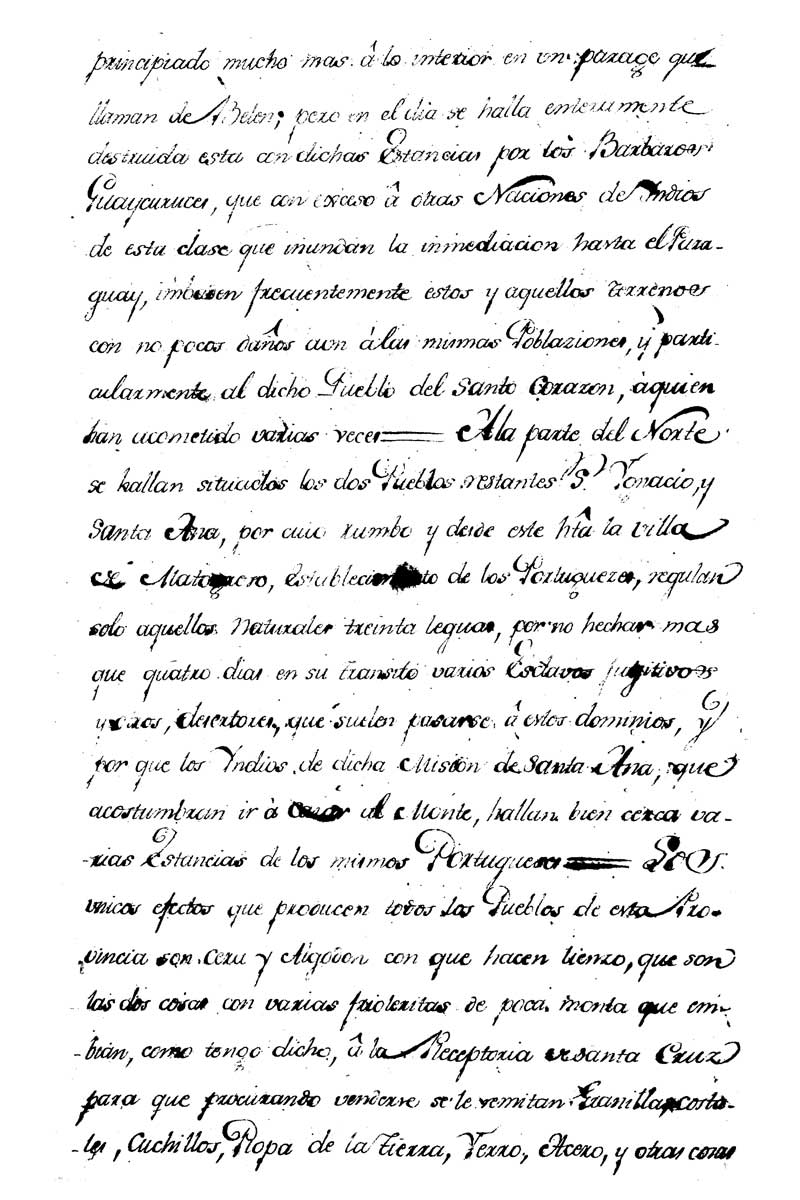 principiado mucho mas â lo interior en un parage que
llaman de Belen; pero en el dia se halla enteramente
destruida esta con dichas Estancias por los Barbaros
Guaycuruces, que con exceso â otras Naciones de Indios
de esta clase que inundan la inmediacion hasta el Para-
guay, imbaden frecuentemente estos y aquellos terrenos
con no pocos daños aun á las mismas Poblaziones, y parti-
cularmente al dicho Pueblo del Santo Corazon, à quien
han acometido varias veces == A la parte del Norte
se hallan situados los dos Pueblos restantes Sn. Ygnacio, y
Santa Ana, por cuio rumbo y desde este hta la villa
de Matogroso, Establecimiento de los Portuguezes, regulan
solo aquellos Naturales treinta leguas, por no hechar mas
que quatro dias en su transito varios Esclavos fugitivos
y otros, desertores, que suelen pasarse â estos dominios, y
por que los Yndios de dicha Mision de Santa Ana, que
acostumbran ir à cazar al Monte, hallan bien cerca va-
-rias Estancias de los mismos Portugueses == Los
unicos efectos que producen todos los Pueblos de esta Pro-
vincia son Cera y Algodon con que hacen lienzo, que son
las dos cosas con varias frioleritas de poca monta que em-
-bian, como tengo dicho, â la Receptoria de Santa Cruz
para que procurando venderse se le remitan Granilla, costa-
-les, Cuchillos, Ropa de la Tierra, Yerro, Acero, y otras cosas